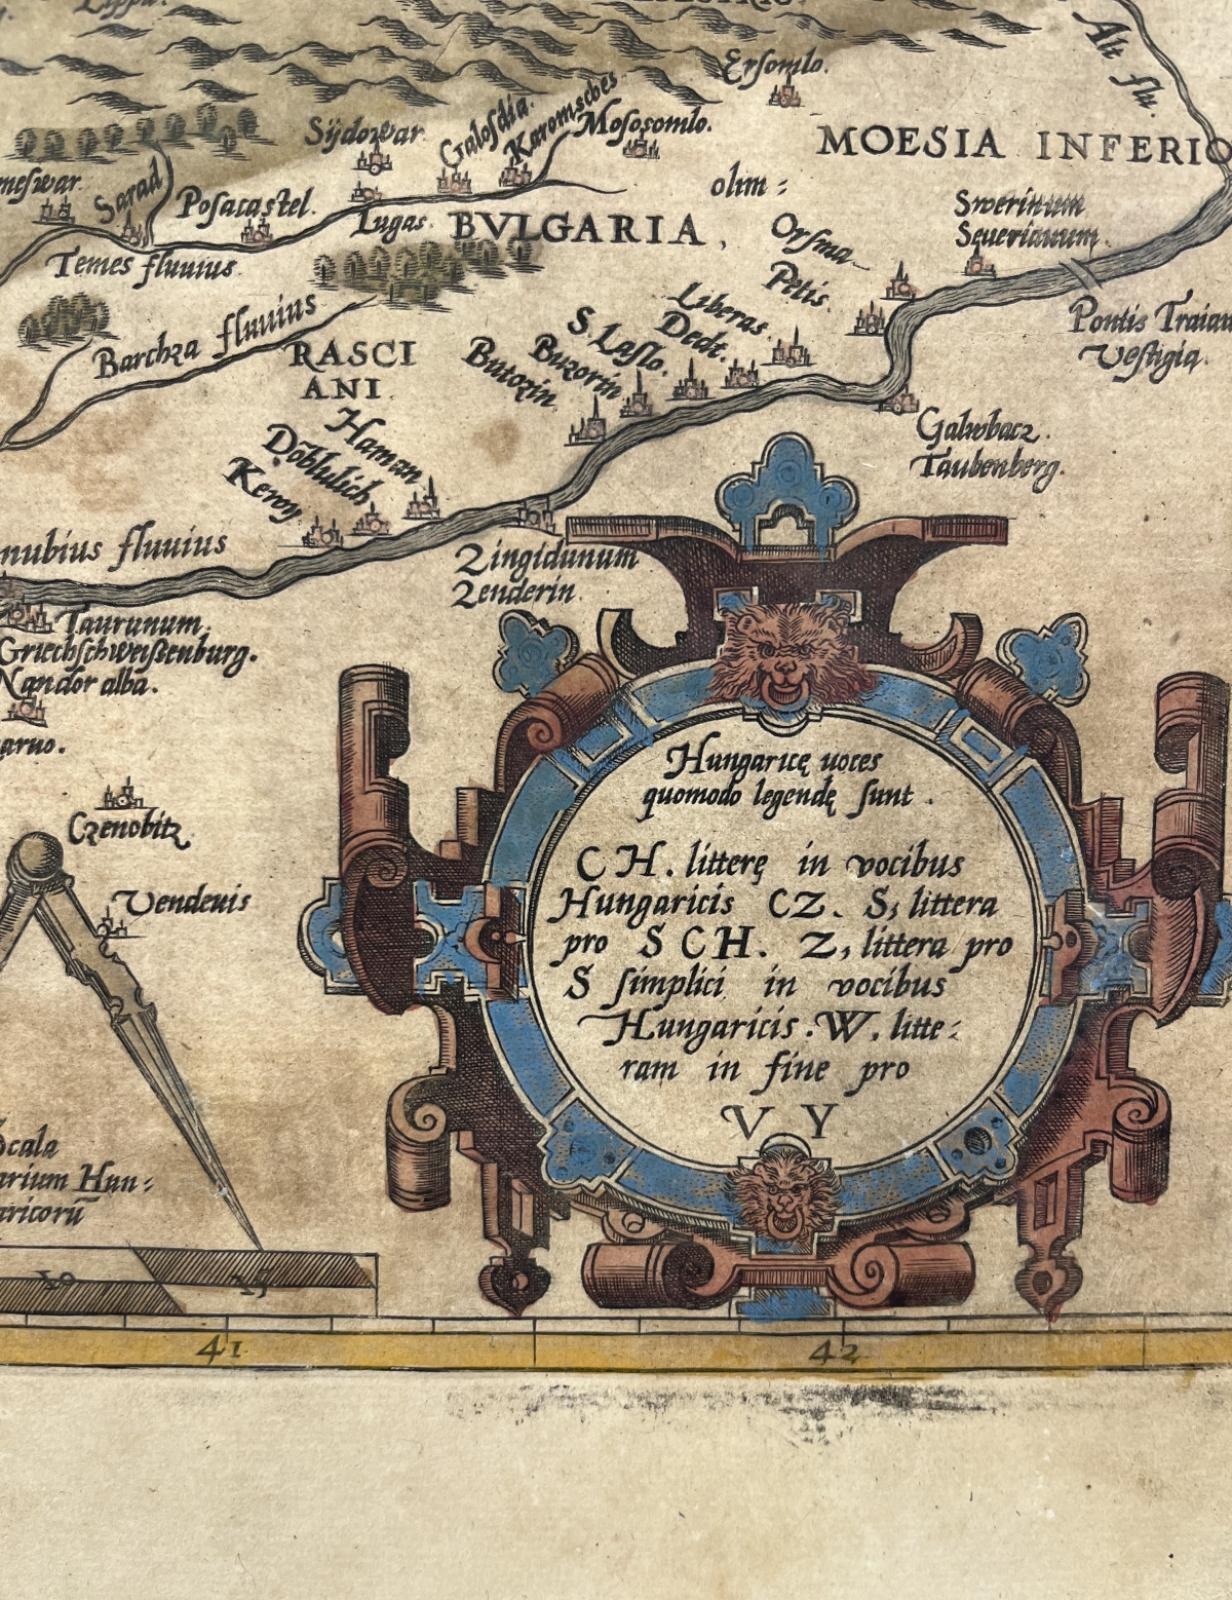 Alt flu.
Ersomlo.
Sÿdowar
Galosdia.
Karomsebes
Mososomlo.
MOESIA INFERIO
meswar
Sarad
Posacastel.
Lugas.
olim :
BVLGARIA,
Orsma
Petis.
Swerinum
Seuerianum.
Temes fluuius.
Pontis Traian
Vestigia.
Liberas.
Dedt.
S. Laslo.
Buzorin
Butozin
Barchza fluuius
RASCI
ANI
Galwbacz.
Taubenberg.
Haman
Dõblulich
Kewy
nubius fluuius
Zingidunum
Zenderin.
Taurunum.
Griechschweißenburg.
Nandor alba.
aruo.
Hungaricę uoces
quomodo legendę sunt.
CH. litterę in vocibus
Hungaricis CZ. S, littera
pro SCH. Z, littera pro
S simplici in vocibus
Hungaricis. W. litte:
ram in fine pro
VY
Czenobitz
Vendenis
Scala
arium Hun:
aricorũ
10
15
41
42